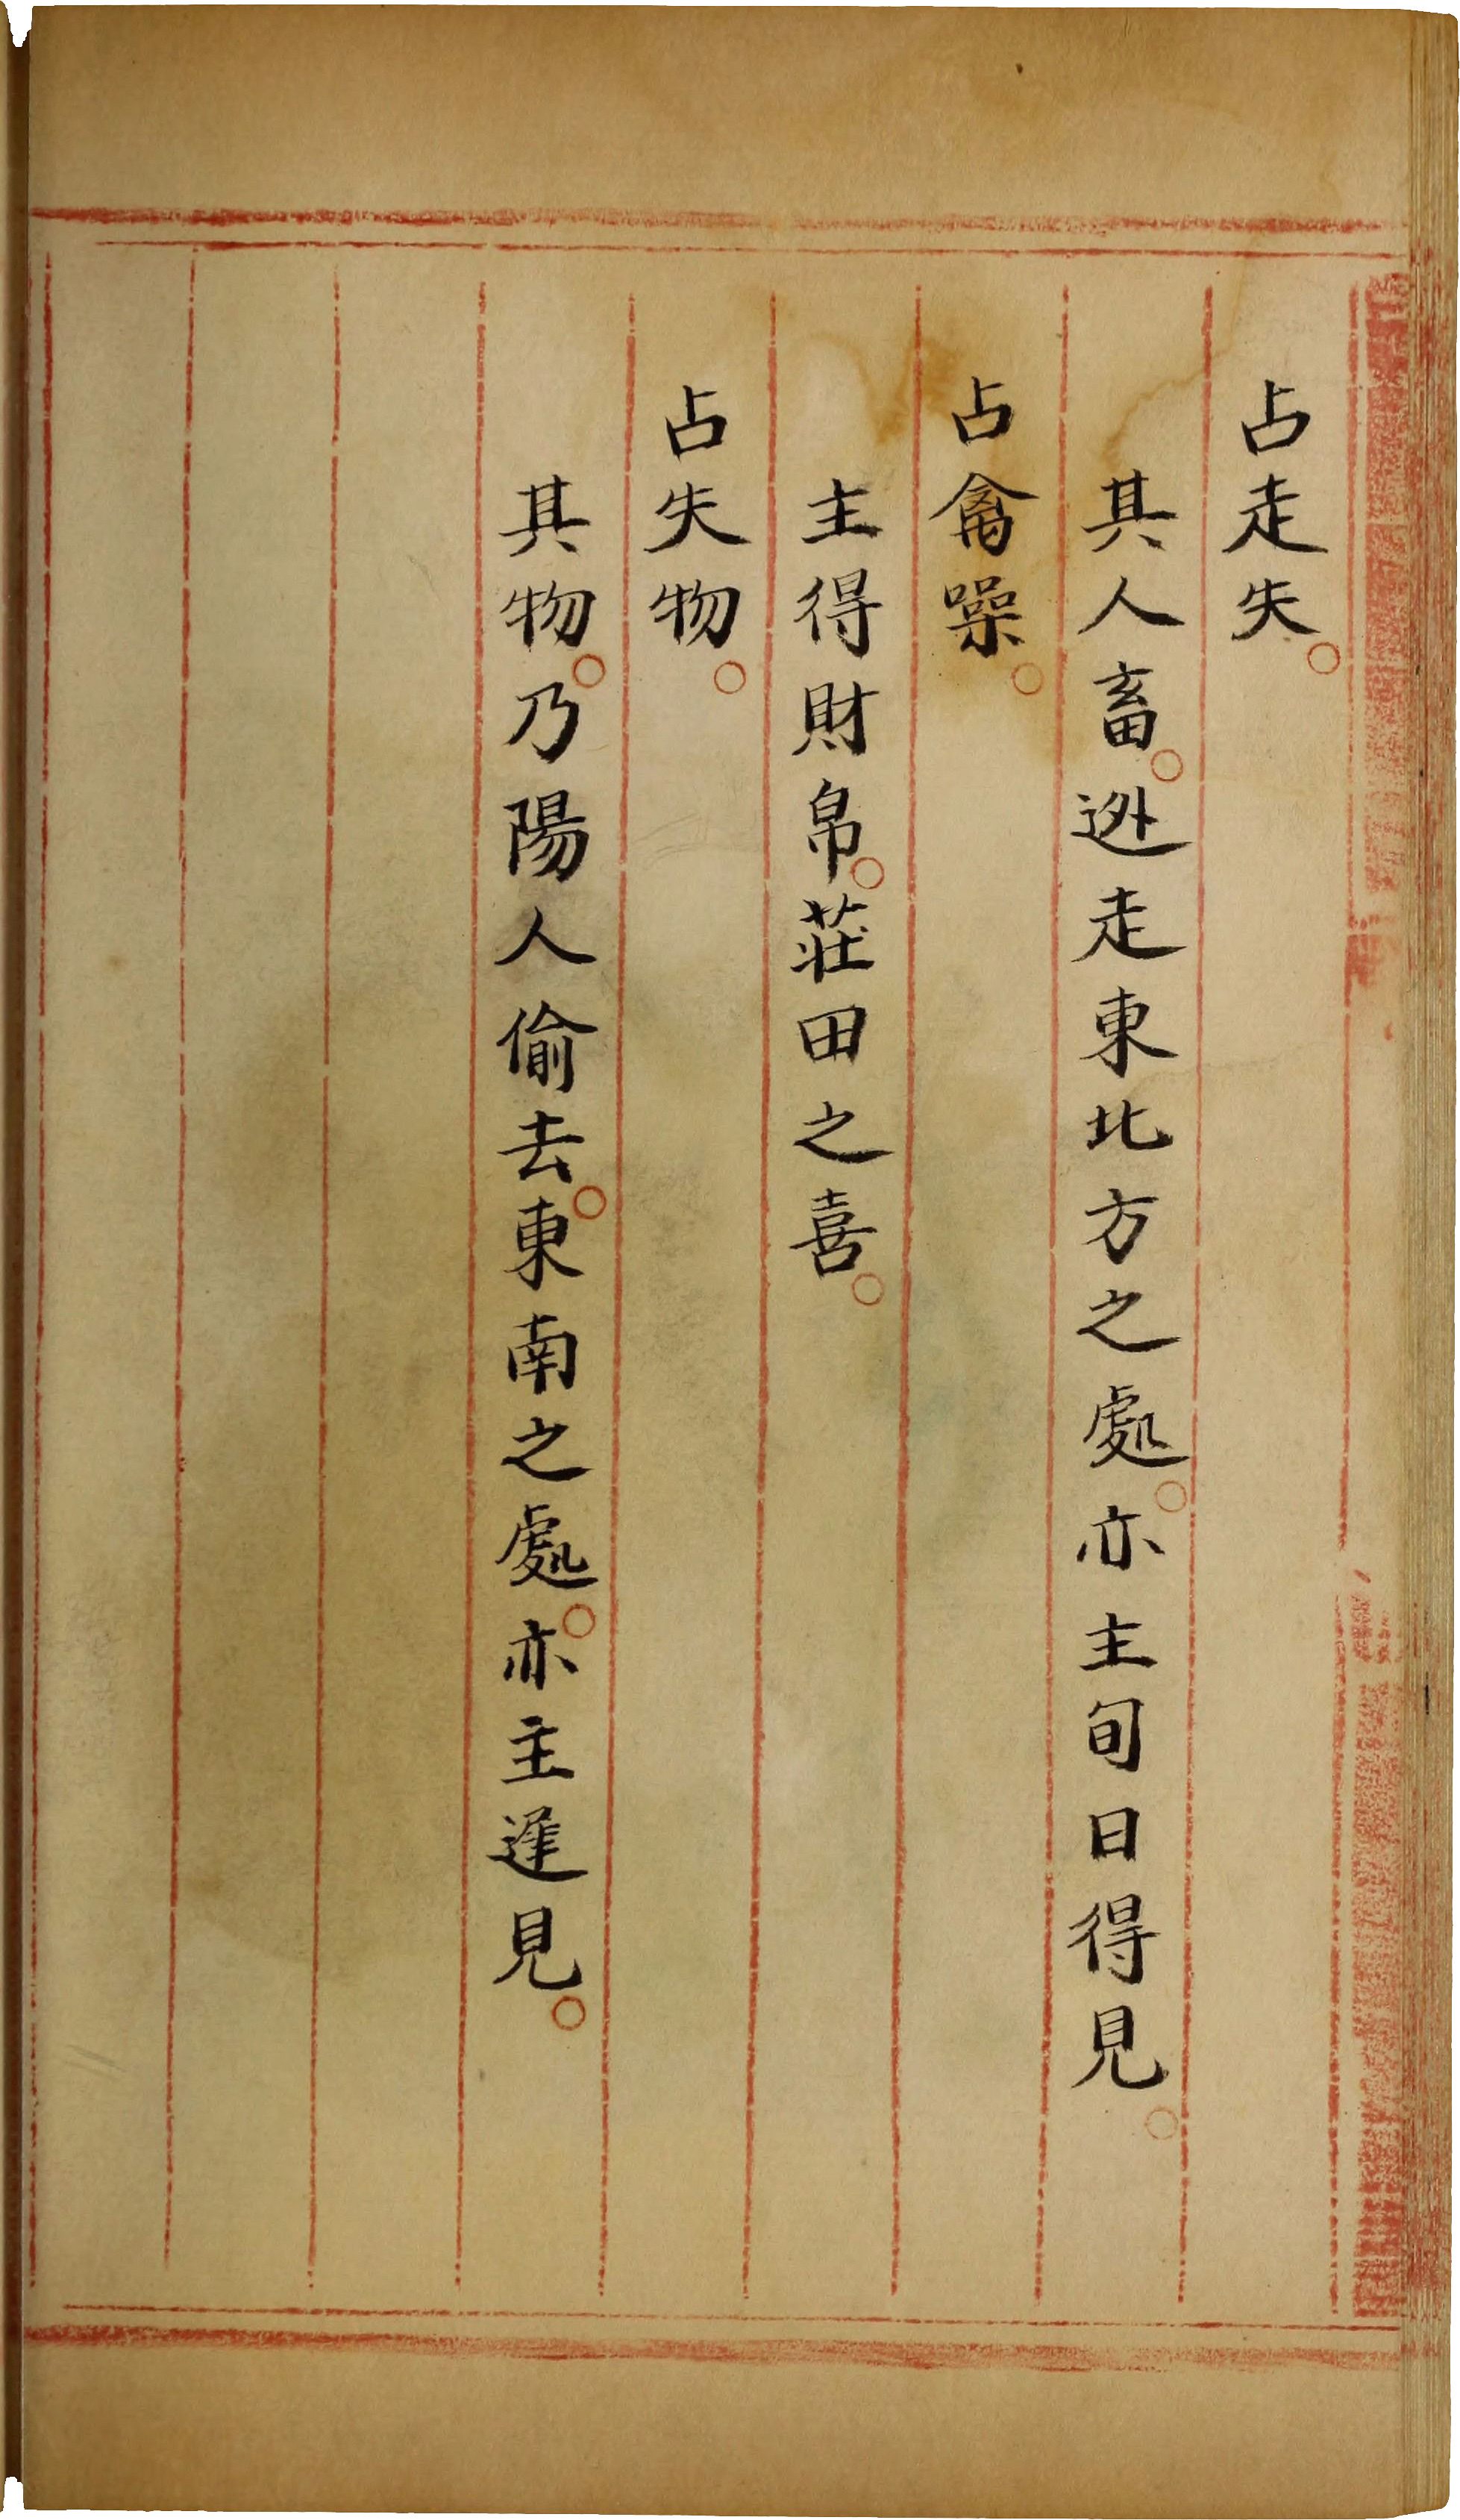 占走失。
其人畜。逃走東北方之處。亦主旬日得見。
占禽噪。
主得財帛。莊田之喜。
占失物。
其物。乃陽人偷去。東南之處。亦主進見。